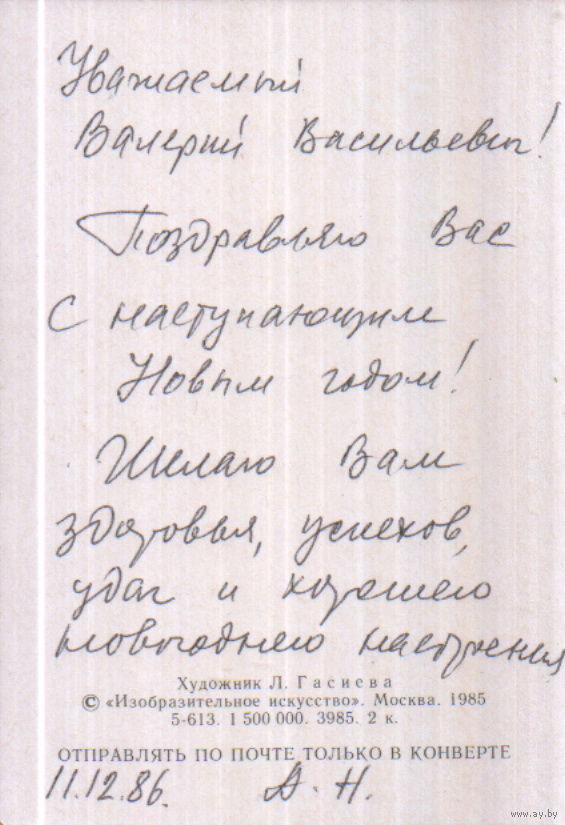 Уважаемый
Валерий Васильевич!
Поздравляю Вас
с наступающим
Новым годом!
Желаю Вам
здоровья, успехов,
удач и хорошего
новогоднего настроения
Художник Л. Гасиева
© «Изобразительное искусство». Москва. 1985
5-613. 1 500 000. 3985. 2 к.
ОТПРАВЛЯТЬ ПО ПОЧТЕ ТОЛЬКО В КОНВЕРТЕ
11.12.86. А. Н.
www.ay.by